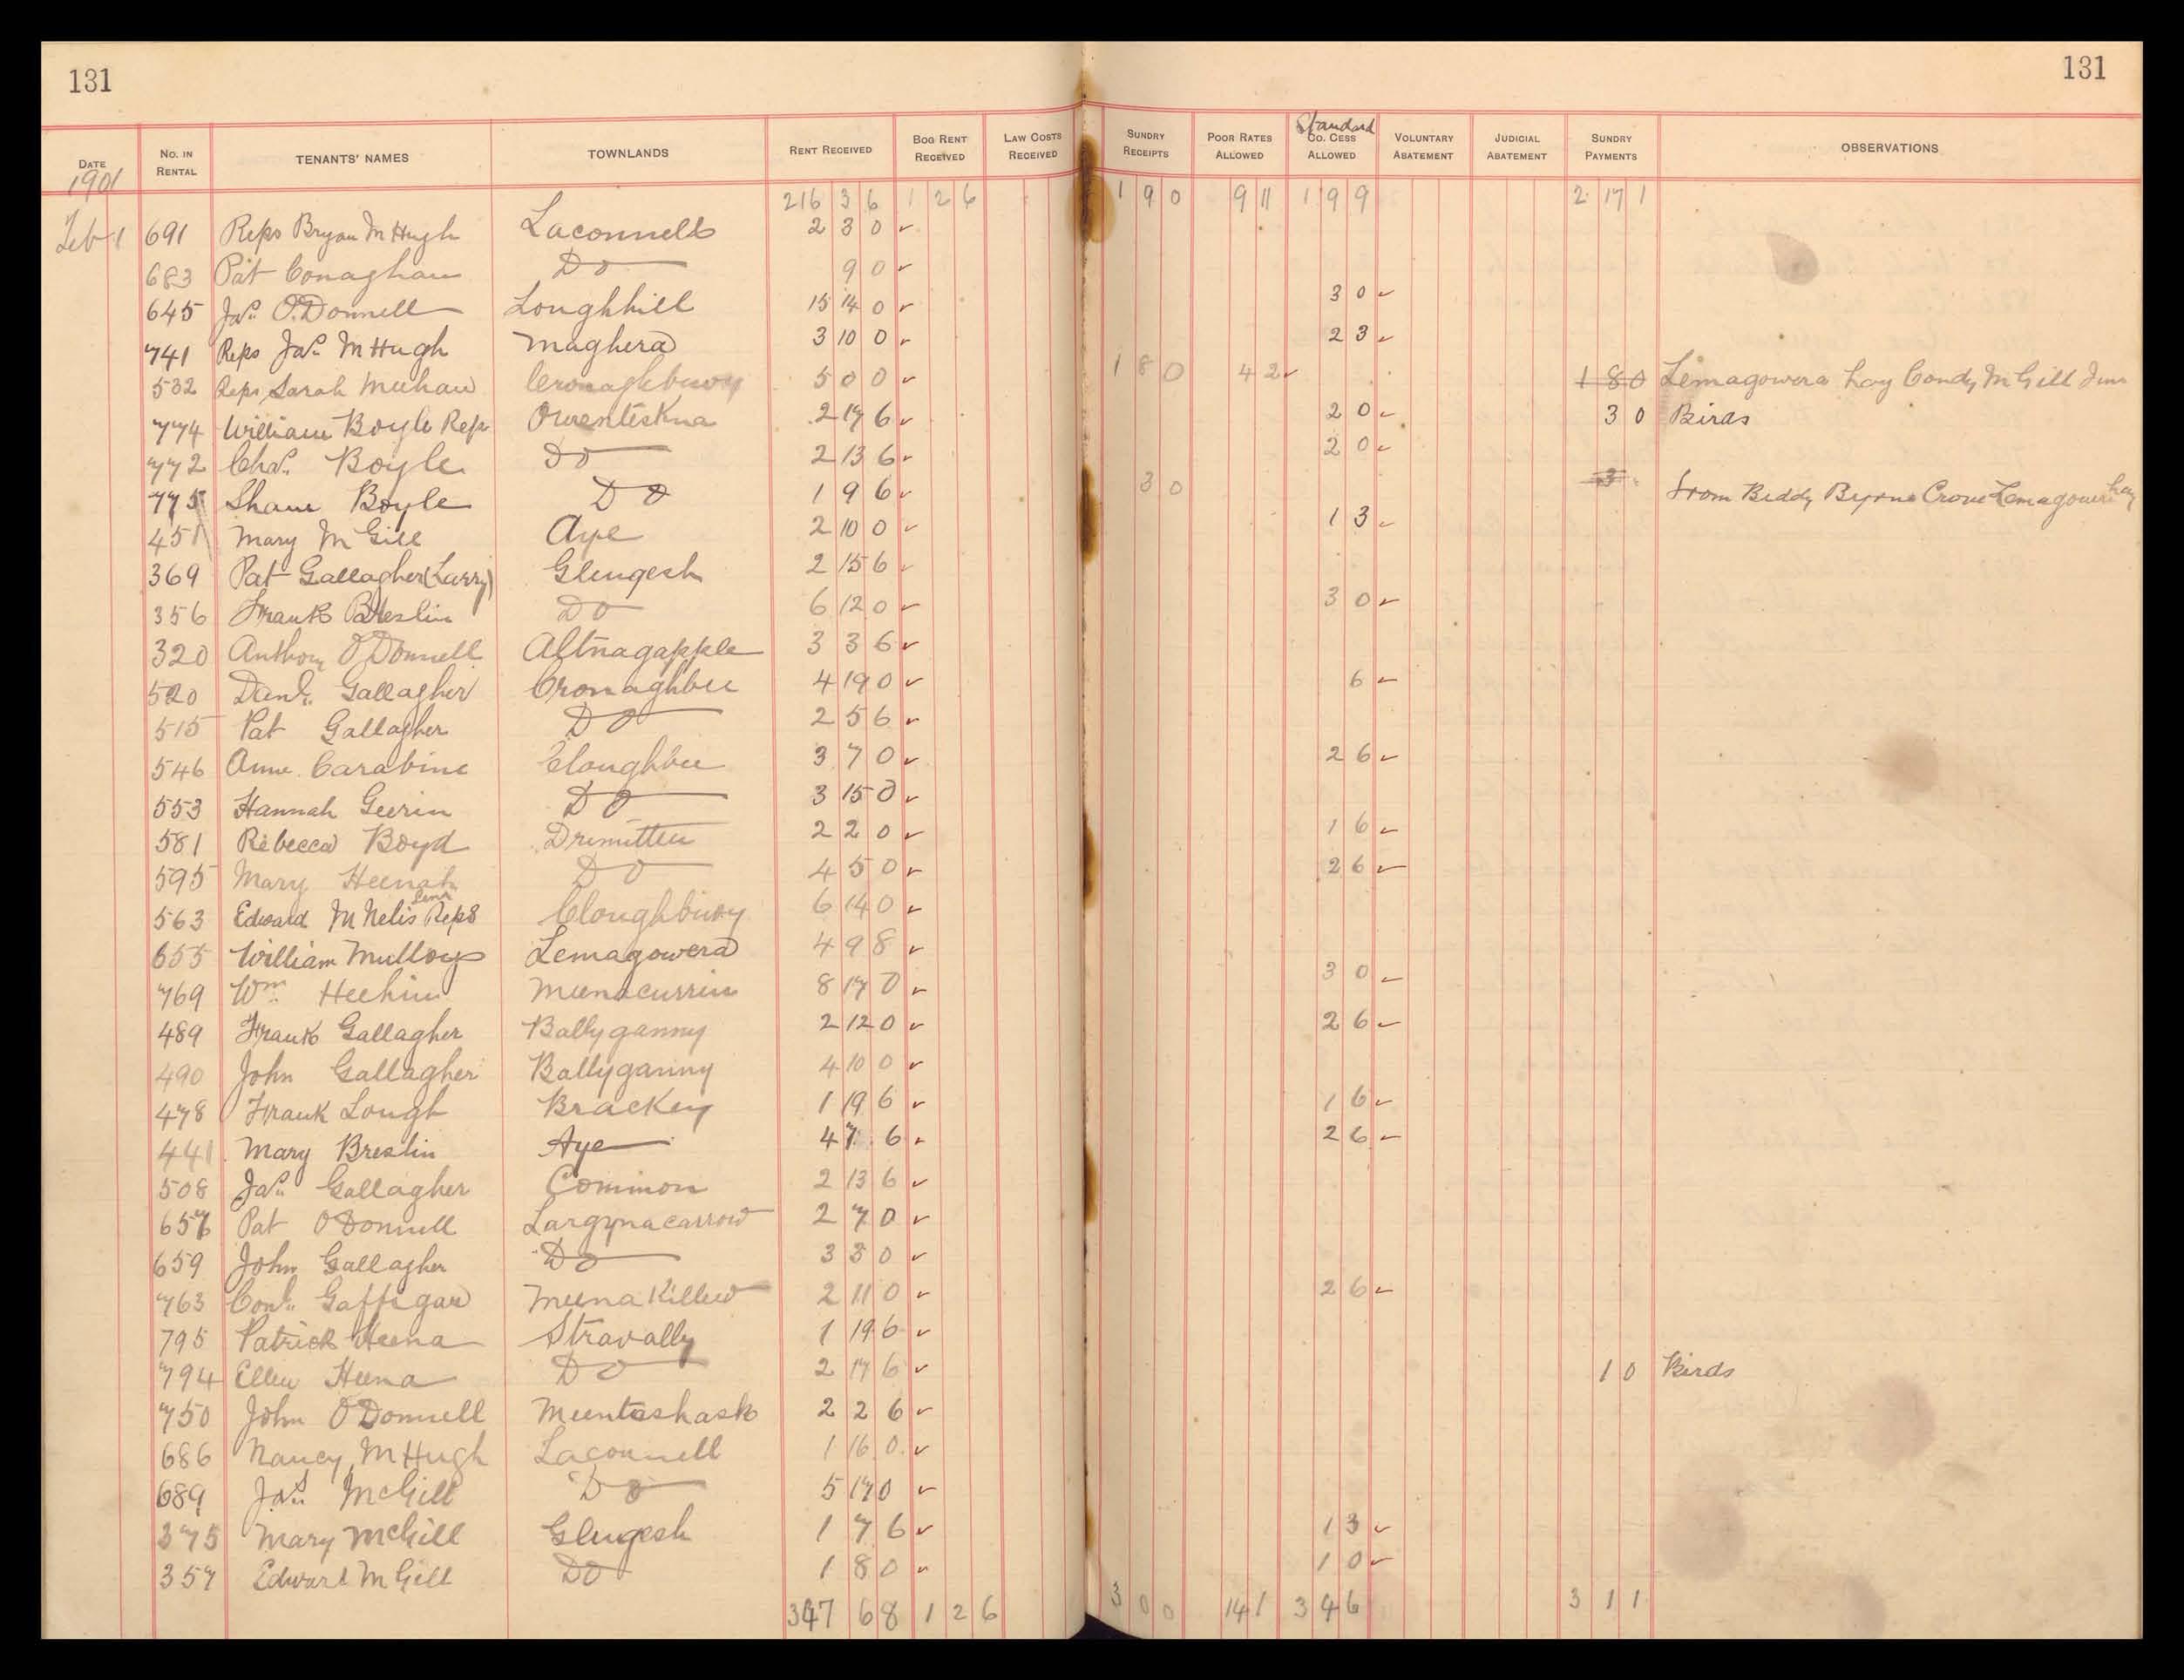 131 131
DATE 1901 No. IN RENTAL TENANTS' NAMES TOWNLANDS RENT RECEIVED BOG RENT RECEIVED LAW COSTS RECEIVED SUNDRY RECEIPTS POOR RATES ALLOWED Standard Co. CESS ALLOWED VOLUNTARY ABATEMENT JUDICIAL ABATEMENT SUNDRY PAYMENTS OBSERVATIONS
216 3 6 1 2 6 1 9 0 9 11 1 9 9 2 17 1
Feb 1 691 Reps Bryan McHugh Laconnell 2 3 0 ✓
683 Pat Conaghan Do 9 0 ✓
645 Jas. O'Donnell Loughhill 15 14 0 ✓ 3 0 ✓
741 Reps Jas. McHugh Maghera 3 10 0 ✓ 2 3 ✓
532 Reps Sarah Meehan 5 0 0 ✓ 1 8 0 4 2 ✓ 1 8 0 Lemagowera hay Condy McGill Junr
774 William Boyle Reps Owenteskna 2 17 6 ✓ 2 0 ✓ 3 0 Birds
772 Chas. Boyle Do 2 13 6 ✓ 2 0 ✓
775 Shane Boyle Do 1 9 6 ✓ 3 0 3 from Biddy Byrne Crove Lemagowera hay
451 Mary McGill Aye 2 10 0 ✓ 1 3 ✓
369 Pat Gallagher (Larry) Glengesh 2 15 6 ✓
356 Frank Breslin Do 6 12 0 ✓ 3 0 ✓
320 Anthony O'Donnell Altnagapple 3 3 6 ✓
520 Danl. Gallagher Cronaghbee 4 19 0 ✓ 6 ✓
515 Pat Gallagher Do 2 5 6 ✓
546 Anne Carabine Cloughbee 3 7 0 ✓ 2 6 ✓
553 Hannah Geerin Do 3 15 0 ✓
581 Rebecca Boyd Drimitten 2 2 0 ✓ 1 6 ✓
595 Mary Heenah Do 4 5 0 ✓ 2 6 ✓
563 Edward McNelis Reps Cloughbuoy 6 14 0 ✓
655 William Mulloy Lemagowera 4 9 8 ✓
769 Wm. Heehin Meenacurrin 8 17 0 ✓ 3 0 ✓
489 Frank Gallagher Ballyganny 2 12 0 ✓ 2 6 ✓
490 John Gallagher Ballyganny 4 10 0 ✓
478 Frank Lough Brackey 1 19 6 ✓ 1 6 ✓
441 Mary Breslin Aye 4 7 6 ✓ 2 6 ✓
508 Jas. Gallagher Common 2 13 6 ✓
657 Pat O'Donnell Largynacarrow 2 7 0 ✓
659 John Gallagher Do 3 3 0 ✓
763 Conl. Gaffigan Meenakillew 2 11 0 ✓ 2 6 ✓
795 Patrick Heena Stravally 1 19 6 ✓
794 Ellen Heena Do 2 17 6 ✓ 1 0 Birds
750 John O'Donnell Meentashask 2 2 6 ✓
686 Nancy McHugh Laconnell 1 16 0 ✓
689 Jas. McGill Do 5 17 0 ✓
375 Mary McGill Glengesh 1 7 6 ✓ 1 3 ✓
357 Edward McGill Do 1 8 0 ✓ 1 0 ✓
347 6 8 1 2 6 3 0 0 14 1 3 4 6 3 1 1